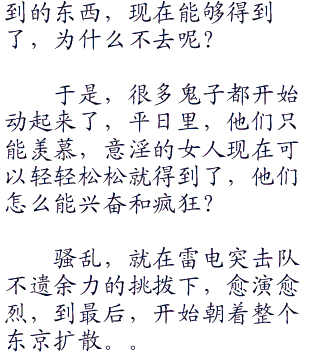 到的东西，现在能够得到
了，为什么不去呢？
于是，很多鬼子都开始
动起来了，平日里，他们只
能羡慕，意淫的女人现在可
以轻轻松松就得到了，他们
怎么能兴奋和疯狂？
骚乱，就在雷电突击队
不遗余力的挑拨下，愈演愈
烈，到最后，开始朝着整个
东京扩散。。